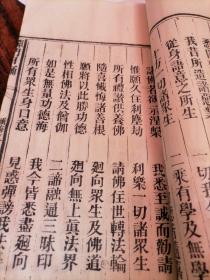 我昔所造諸惡業
從身語意之所生
十方一切諸眾生 二乘有學及無學
諸佛若欲示涅槃 我悉至誠而勸請
惟願久住刹塵劫 利樂一切諸眾生
所有禮讚供養佛 請佛住世轉法輪
隨喜懺悔諸善根 迴向眾生及佛道
願將以此勝功德 迴向無上真法界
性相佛法及僧伽 二諦融通三昧印
如是無量功德海 我今皆悉盡迴向
所有眾生身口意 見惑彈謗我法